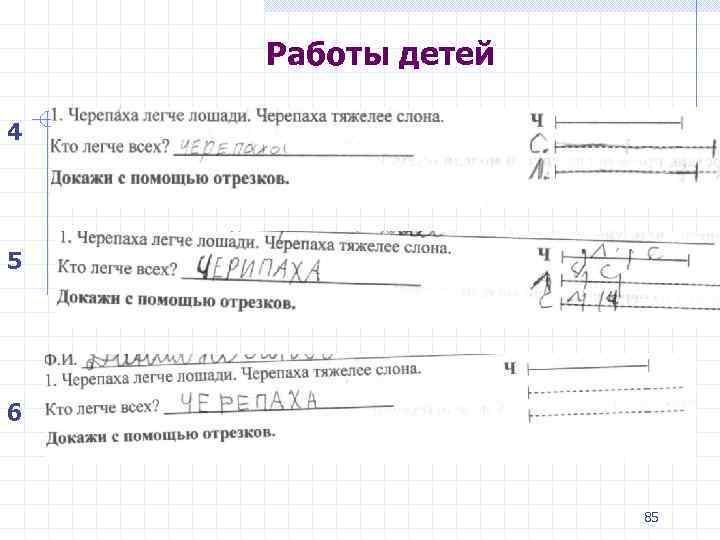 Работы детей
4
1. Черепаха легче лошади. Черепаха тяжелее слона.
Кто легче всех? ЧЕРЕПАХА
Докажи с помощью отрезков.
Ч
С.
Л.
5
1. Черепаха легче лошади. Черепаха тяжелее слона.
Кто легче всех? ЧЕРИПАХА
Докажи с помощью отрезков.
Ч Л. С
С
6
Ф.И.
1. Черепаха легче лошади. Черепаха тяжелее слона.
Кто легче всех? ЧЕРЕПАХА
Докажи с помощью отрезков.
Ч
85